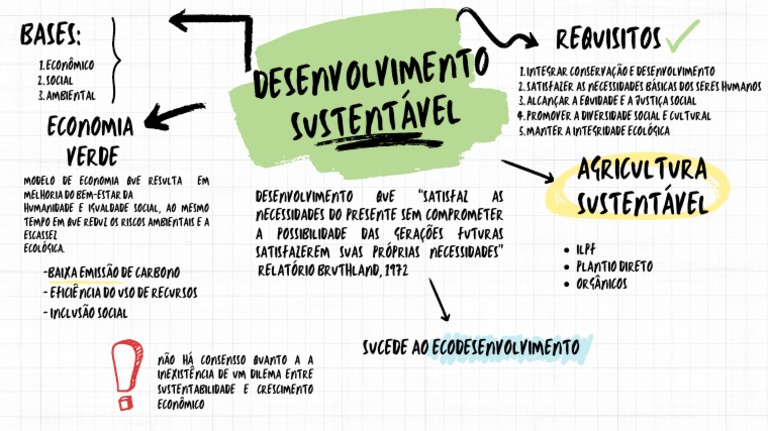 BASES:
1. ECONÔMICO
2. SOCIAL
3. AMBIENTAL
DESENVOLVIMENTO
SUSTENTÁVEL
REQUISITOS
1. INTEGRAR CONSERVAÇÃO E DESENVOLVIMENTO
2. SATISFAZER AS NECESSIDADES BÁSICAS DOS SERES HUMANOS
3. ALCANÇAR A EQUIDADE E A JUSTIÇA SOCIAL
4. PROMOVER A DIVERSIDADE SOCIAL E CULTURAL
5. MANTER A INTEGRIDADE ECOLÓGICA
ECONOMIA
VERDE
MODELO DE ECONOMIA QUE RESULTA EM
MELHORIA DO BEM-ESTAR DA
HUMANIDADE E IGUALDADE SOCIAL, AO MESMO
TEMPO EM QUE REDUZ OS RISCOS AMBIENTAIS E A
ESCASSEZ
ECOLÓGICA.
-BAIXA EMISSÃO DE CARBONO
- EFICIÊNCIA DO USO DE RECURSOS
- INCLUSÃO SOCIAL
DESENVOLVIMENTO QUE "SATISFAZ AS
NECESSIDADES DO PRESENTE SEM COMPROMETER
A POSSIBILIDADE DAS GERAÇÕES FUTURAS
SATISFAZEREM SUAS PRÓPRIAS NECESSIDADES"
RELATÓRIO BRUTHLAND, 1972
AGRICULTURA
SUSTENTÁVEL
• ILPF
• PLANTIO DIRETO
• ORGÂNICOS
SUCEDE AO ECODESENVOLVIMENTO
NÃO HÁ CONSENSSO QUANTO A A
INEXISTÊNCIA DE UM DILEMA ENTRE
SUSTENTABILIDADE E CRESCIMENTO
ECONÔMICO